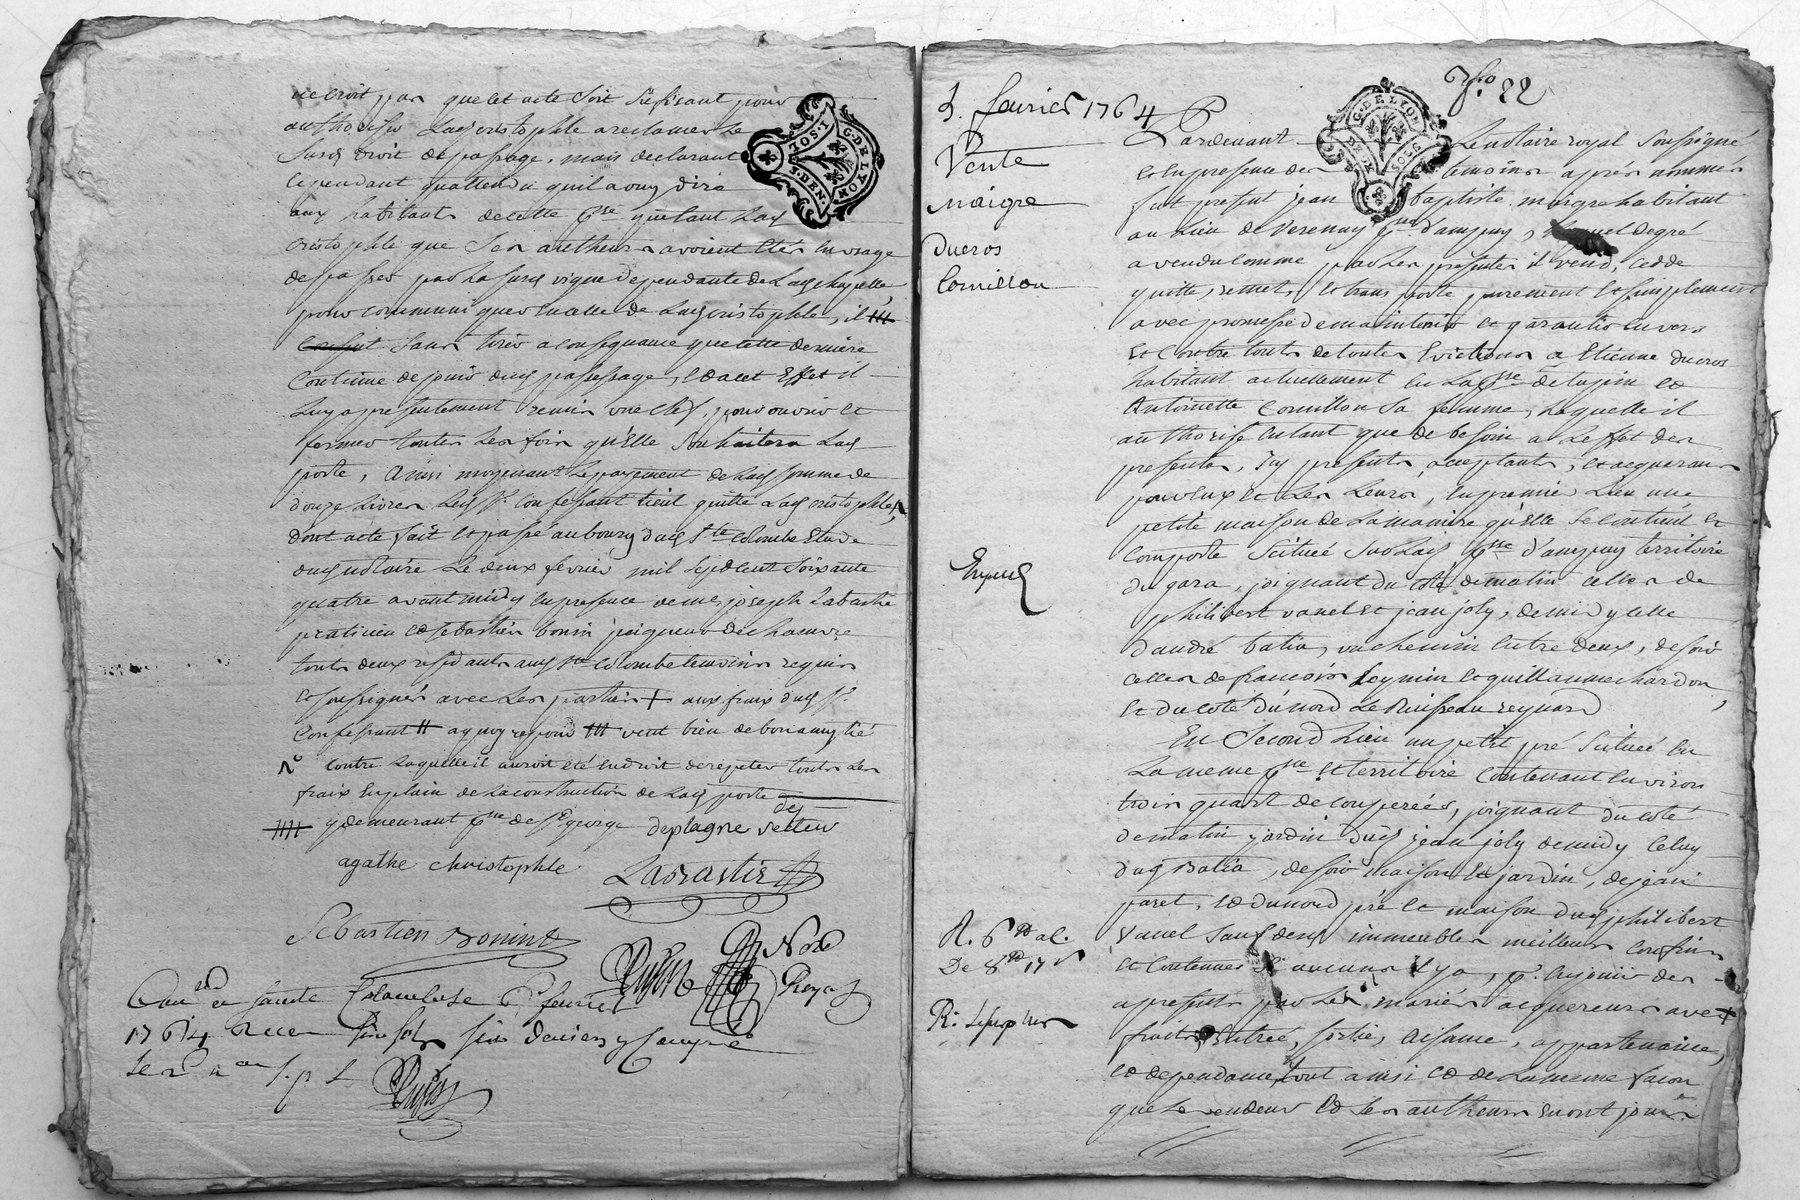 ne croit pas que cet acte soit sufisant pour
authoriser Lad christophle a reclamer le
susd droit de passage, mais declarant
cependant qu'attendu qu'il a ouy dire
aux habitants de cette psse que tant Lad
cristophle que ses autheurs avoient etés en usage
de passer par La susd vigne dependante de Lad chapelle
pour communiquer en celle de Lad cristophle, il
consent sans tirer a consequance que cette derniere
continue de jouir dud passage, et a cet effet il
Luy a presentement remis une clef, pour ouvrir et
fermer toutes Les fois qu'Elle souhaitera Lad
porte, ainsi moyenant Le payement de Lad somme de
douze Livres Led Sr. confessant tient quitte Lad cristophle
dont acte fait et passé au bourg dud Ste colombe Etude
dud notaire Le deux fevrier mil sept cent soixante
quatre avant midy en presence de me joseph Labastie
praticien et sebastien bonin peigneur de chanvre
touts deux residants aud Ste colombe temoins requis
et soussignés avec Les parties + aux frais dud Sr.
confessant # a quoy repond ### veut bien de bon amytié
contre Laquelle il auroit été en droit de repeter touts Les
frais en plain de La construction de Lad porte
y demeurant psse de St george deplagne recteur
agathe christophle Labastie
Sebastien Bonint
Nore
Royal
Con.lé a sainte Colombe le 6e fevrier
1764 Recu six sols six deniers y compris
G. DE LYON
3. fevrier 1764
fo. 22
Vente
maigre
ducros
Cornillon
Pardevant Le notaire royal soussigné
et en presence des temoins aprés nommés
fut present jean baptiste maigre habitant
au Lieu de Verenay psse d'ampuy, Lequel de gré
a vendu comme par Les presentes il vend, cedde
quitte, remet, et transporte purement et simplement
avec promesse de maintenir et garantir envers
Et contre touts de toutes Evictions a Etienne ducros
habitant actuellement en La psse de tupin et
Antoinette Cornillon sa femme, Laquelle il
authorise en tant que de besoin a L'effet des
presentes, icy presents, acceptants, et acquerans
pour eux et Les Leurs, en premier Lieu une
petite maison de La maniere qu'elle se contient et
comporte scituée sur Lad psse d'ampuy territoire
du gara, joignant du coté de matin celles de
philibert vanel et jean joly, de midy celle
d'andré batia, un chemin entre deux, de soir
celles de francois Leymin et guillaume chardon,
et du coté du nord Le Ruisseau reynard
En Second Lieu un petit pré scituée en
La meme psse et territoire contenant environ
trois quart de couperées, joignant du coté
de matin jardin dud jean joly de midy celuy
dud Batia, de soir maison et jardin, de jean
paret, et du nord pré et maison dud philibert
Vanel sauf desd immeubles meilleurs confins
et contenues s'aucuns il y a, pr. en jouir des
a presents par Les mariés acquereurs avec
fruits, Entrée, sortie, aisance, appartenance,
et dependance, tout ainsi et de La meme facon
que Le vendeur et ses autheurs en ont joui